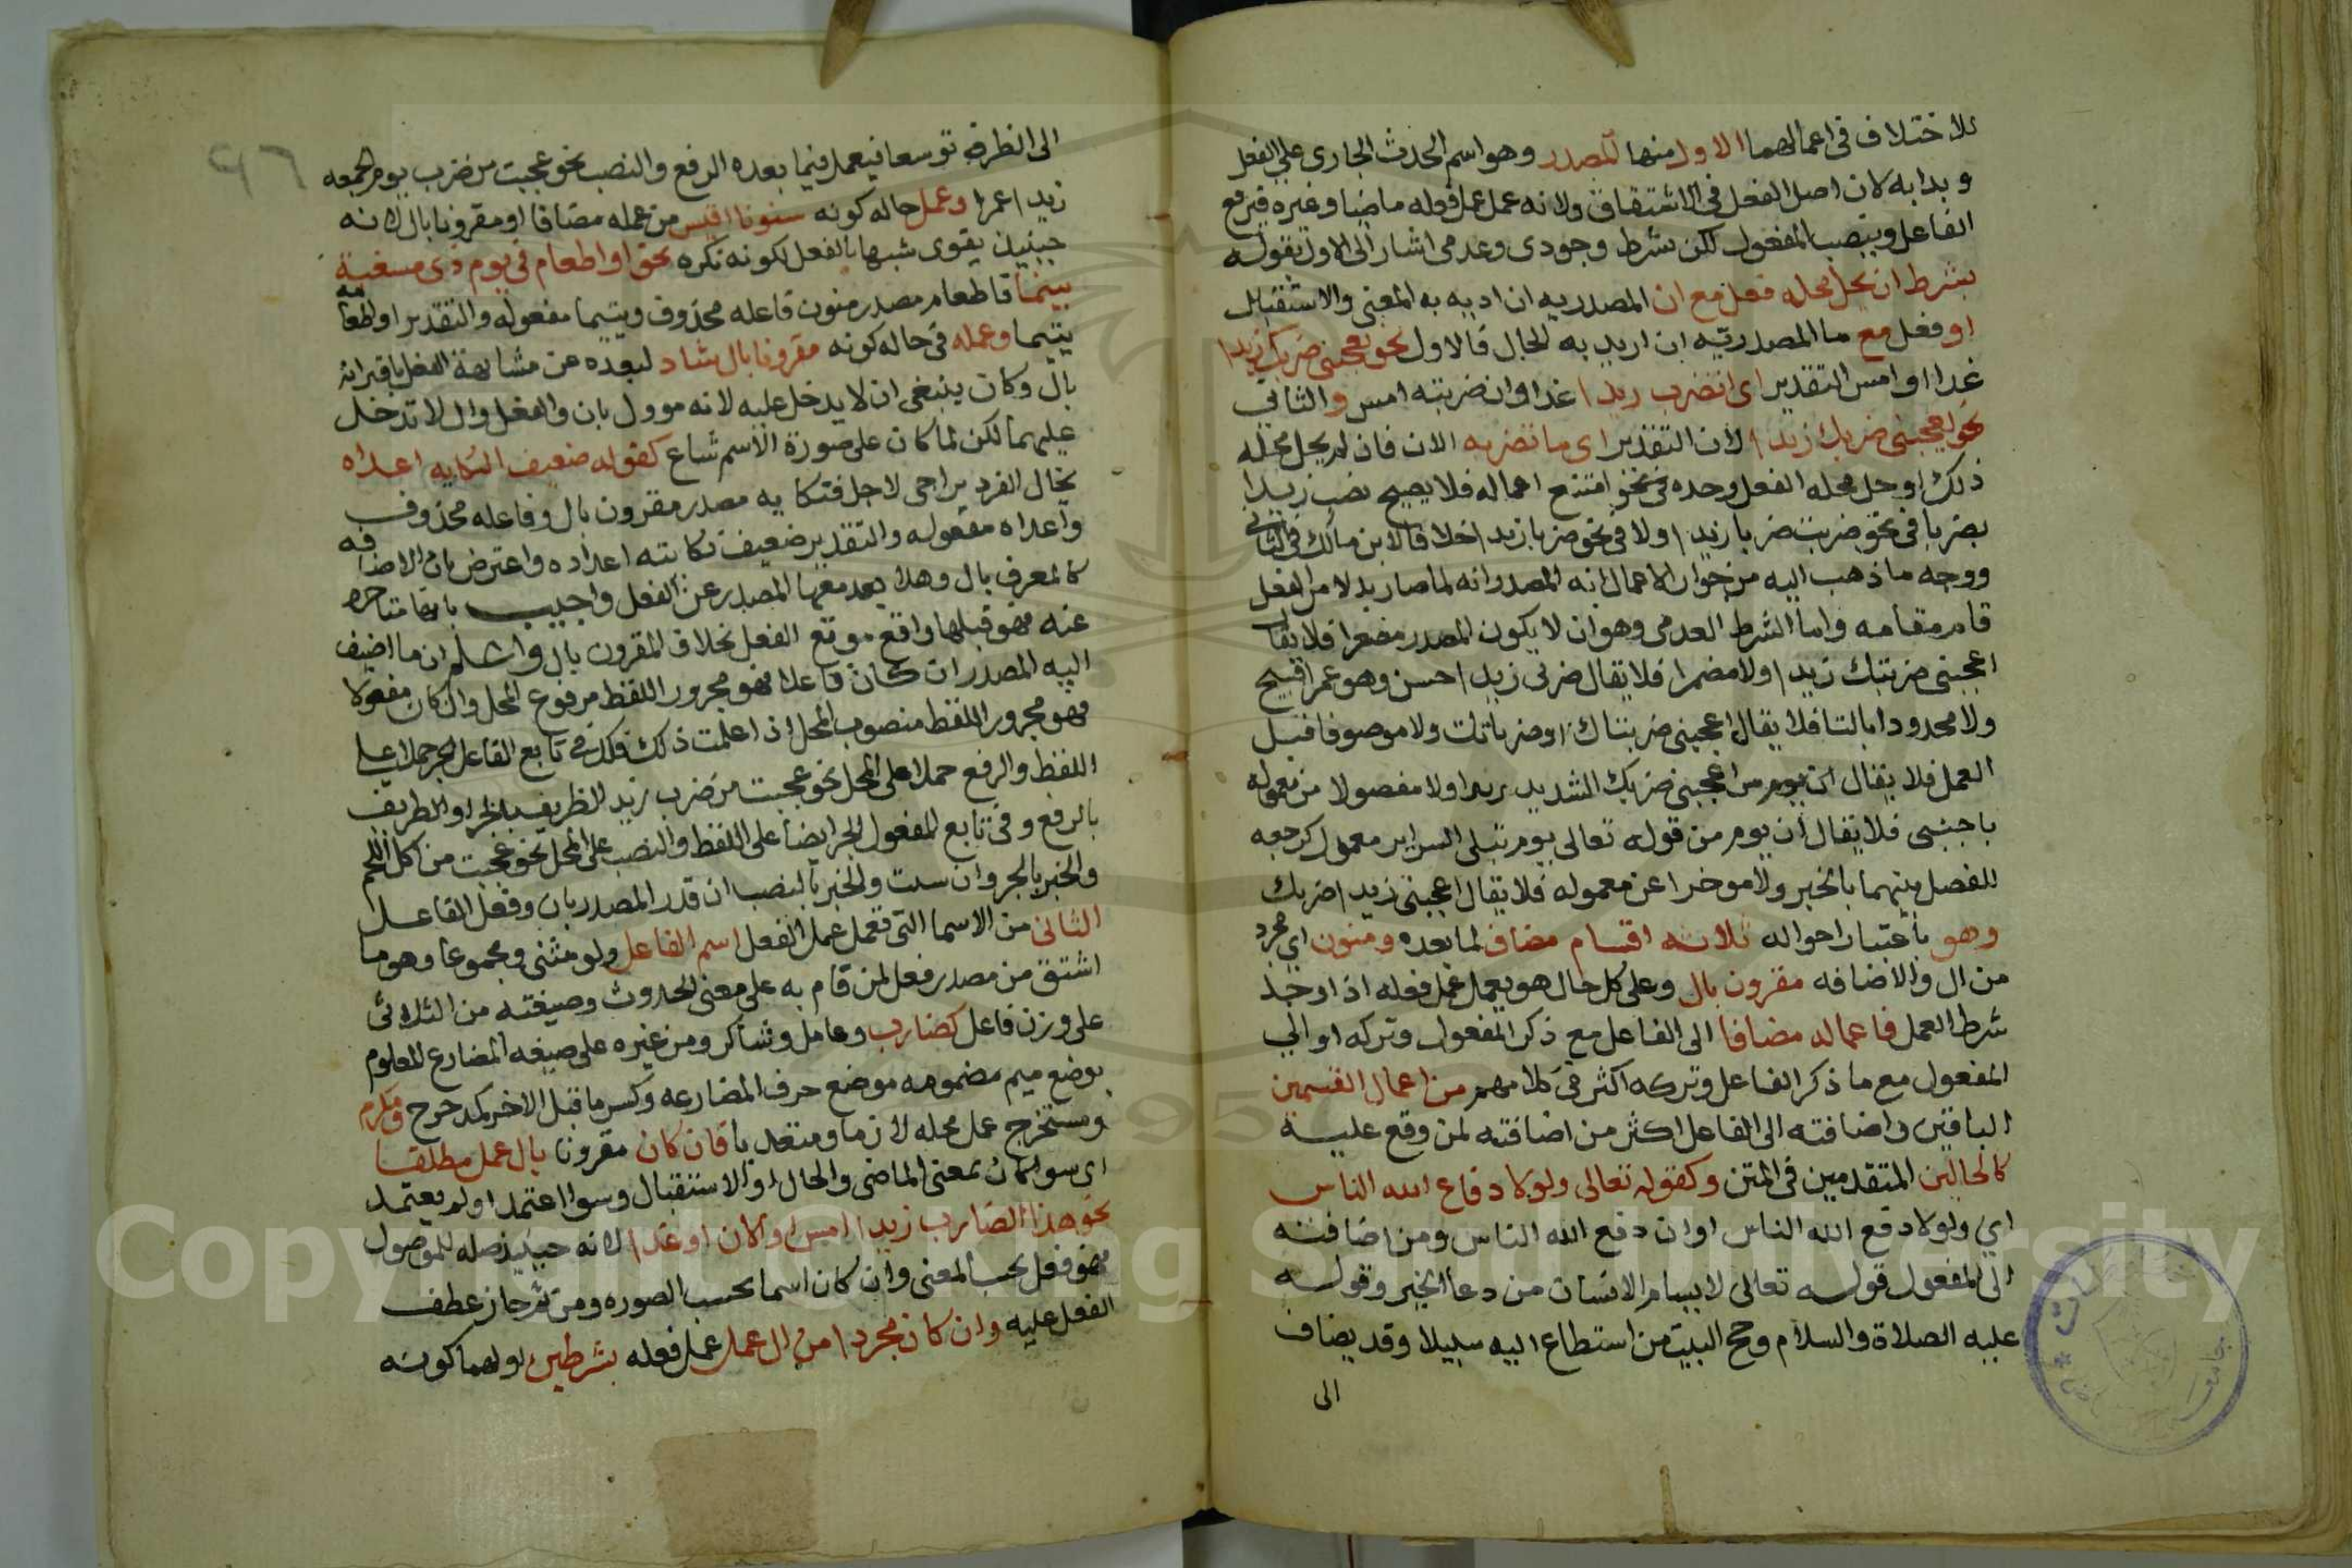 للاختلاف في اعمالهما الاول منها المصدر وهو اسم الحدث الجاري على الفعل
وبدا به لان اصل الفعل في الاشتقاق ولانه عمل عمل فعله ماضيا وغيره فيرفع
الفاعل وينصب المفعول لكن بشرط وجودي وعدمي اشار الى الاول بقوله
بشرط ان يحل محله فعل مع ان المصدريه ان اريد به المعنى والاستقبال
او فعل مع ما المصدريه ان اريد به الحال فالاول نحو يعجبني ضربك زيدا
غدا او امس التقدير اي ان تضرب زيدا غدا او ان ضربته امس والثاني
نحو يعجبني ضربك زيدا الان التقدير اي ما تضربه الان فان لم يحل محله
ذلك او حل محله الفعل وحده امتنع اعماله فلا يصح نصب زيدا
بضربا في نحو ضربت ضربا زيدا ولا في نحو ضربا زيدا خلافا لابن مالك في الثاني
ووجه ما ذهب اليه من جواز الاعمال انه المصدر وانه لما صار بدلا من الفعل
قام مقامه واما الشرط العدمي وهو ان لا يكون المصدر مصغرا فلا يقال
اعجبني ضريبك زيدا ولا مضمرا فلا يقال ضربي زيدا حسن وهو عمرا قبيح
ولا محدودا بالتا فلا يقال اعجبني ضربتك او ضرباتك ولا موصوفا قبل
العمل فلا يقال اعجبني ضربك الشديد زيدا ولا مفصولا من معموله
باجنبي فلا يقال ان يوم من قوله تعالى يوم تبلى السراير معمول لرجعه
للفصل بينهما بالخبر ولا موخرا عن معموله فلا يقال اعجبني زيدا ضربك
وهو باعتبار احواله ثلاثه اقسام مضاف لما بعده ومنون اي مجرد
من ال والاضافه مقرون بال وعلى كل حال هو يعمل عمل فعله اذا وجد
شرط العمل فاعماله مضافا الى الفاعل مع ذكر المفعول وتركه او الى
المفعول مع ما ذكر الفاعل وتركه اكثر في كلامهم من اعمال القسمين
الباقين واضافته الى الفاعل اكثر من اضافته لمن وقع عليه
كالحالين المتقدمين في المتن وكقوله تعالى ولولا دفاع الله الناس
اي ولولا دفع الله الناس او ان دفع الله الناس ومن اضافته
الى المفعول قوله تعالى لا يسام الانسان من دعا الخير وقوله
عليه الصلاة والسلام وحج البيت من استطاع اليه سبيلا وقد يضاف
الى
٩٦
الى الظرف توسعا فيعمل فيما بعده الرفع والنصب نحو عجبت من ضرب يوم الجمعه
زيد اعمرا وعمله حاله كونه منونا اقيس من عمله مضافا او مقرونا بال لانه
حينيذ يقوى شبهها بالفعل لكونه نكره نحو او اطعام في يوم ذي مسغبة
يتيما فاطعام مصدر منون فاعله محذوف ويتيما مفعوله والتقدير او اطعامه
يتيما وعمله في حاله كونه مقرونا بال شاد لبعده عن مشابهة الفعل باقترانه
بال وكان ينبغي ان لا يدخل عليه لانه موول بان والفعل وال لا تدخل
عليهما لكن لما كان على صورة الاسم شاع كقوله ضعيف النكايه اعداه
يخال الفرار يراخي الاجل فنكايه مصدر مقرون بال وفاعله محذوف
واعداه مفعوله والتقدير ضعيف نكايته اعداده واعترض بان الاضافه
كالمعرف بال وهلا بعد معها المصدر عن الفعل واجيب بانها متاخره
عنه فهو قبلها واقع موقع الفعل بخلاف المقرون بال واعلم ان ما اضيف
اليه المصدر ان كان فاعلا فهو مجرور اللفظ مرفوع المحل وان كان مفعولا
فهو مجرور اللفظ منصوب المحل اذا علمت ذلك فلك في تابع الفاعل الجر حملا على
اللفظ والرفع حملا على المحل نحو عجبت من ضرب زيد الظريف بالجر او الظريف
بالرفع وفي تابع المفعول الجر ايضا على اللفظ والنصب على المحل نحو عجبت من اكل اللحم
والخبز بالجر وان سيت والخبز بالنصب ان قدر المصدر بان وفعل الفاعل
الثاني من الاسما التي تعمل عمل الفعل اسم الفاعل ولو مثنى ومجموعا وهو ما
اشتق من مصدر فعل لمن قام به على معنى الحدوث وصيغته من الثلاثي
على وزن فاعل كضارب وعامل وشاكر ومن غيره على صيغه المضارع المعلوم
بوضع ميم مضمومه موضع حرف المضارعه وكسر ما قبل الاخر كمدحرج ومكرم
ومستخرج عمل محله لازما ومتعديا فان كان مقرونا بال عمل مطلقا
اي سوا كان بمعنى الماضي والحال او الاستقبال وسوا اعتمد او لم يعتمد
نحو هذا الضارب زيدا امس او الان او غدا لانه حينيذ صله للموصول
فهو فعل بحسب المعنى وان كان اسما بحسب الصوره ومن ثم جاز عطف
الفعل عليه وان كان مجردا من ال عمل عمل فعله بشرطين اولهما كونه
Copyright © King Saud University